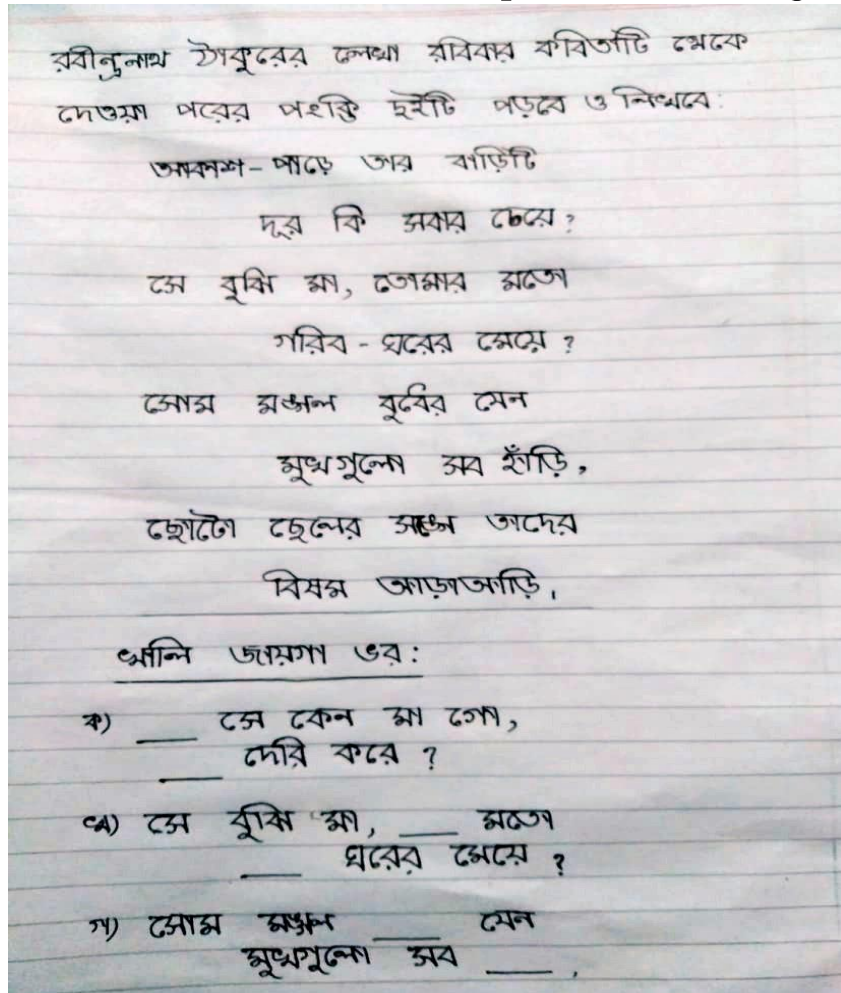 রবীন্দ্রনাথ ঠাকুরের লেখা রবিবার কবিতাটি থেকে
দেওয়া পরের পংক্তি দুইটি পড়বে ও লিখবে:
আকাশ-পাড়ে তার বাড়িটি
দূর কি সবার চেয়ে?
সে বুঝি মা, তোমার মতো
গরিব-ঘরের মেয়ে?
সোম মঙ্গল বুধের যেন
মুখগুলো সব হাঁড়ি,
ছোটো ছেলের সঙ্গে তাদের
বিষম আড়াআড়ি,
খালি জায়গা ভর:
ক) ___ সে কেন মা গো,
___ দেরি করে ?
খ) সে বুঝি মা, ___ মতো
___ ঘরের মেয়ে ?
গ) সোম মঙ্গল ___ যেন
মুখগুলো সব ___ .